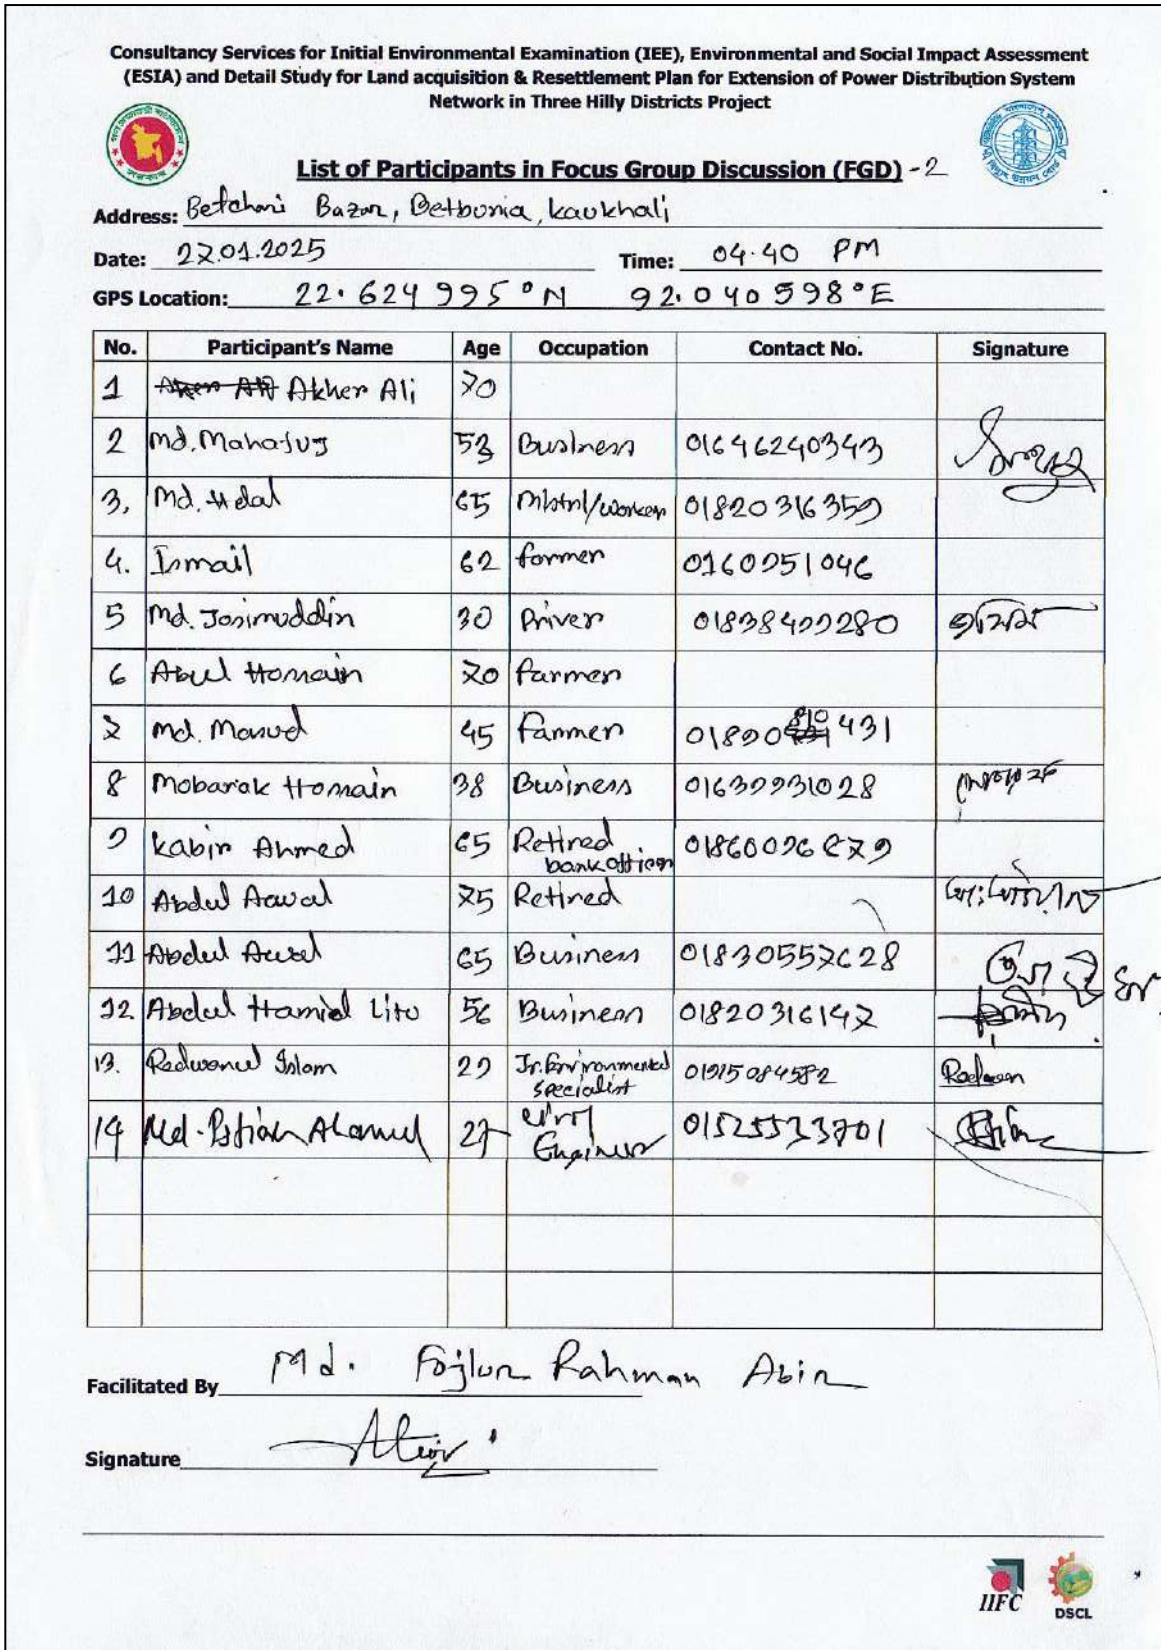 Consultancy Services for Initial Environmental Examination (IEE), Environmental and Social Impact Assessment
(ESIA) and Detail Study for Land acquisition & Resettlement Plan for Extension of Power Distribution System
Network in Three Hilly Districts Project
List of Participants in Focus Group Discussion (FGD) - 2
Address: Betchari Bazar, Betbunia, Kaukhali
Date: 27.01.2025 Time: 04.40 PM
GPS Location: 22.624995°N 92.040598°E
No. Participant's Name Age Occupation Contact No. Signature
1 Akher Ali 70
2 Md. 53 Business 01646240343
3, Md. 65 /worker 01820316359
4. Ismail 62 farmer 0160951046
5 Md. Josimuddin 30 Driver 01838499280 জসিম
6 Abul Hossain 70 farmer
7 Md. Masud 45 Farmer 01890 810 431
8 Mobarak Hossain 38 Business 01639931028
9 Kabir Ahmed 65 Retired bank officer
10 Abdul Aawal 75 Retired
11 Abdul 65 Business 01830557628
12 Abdul Hamid Litu 56 Business 01820316147
13. Redwanul Islam 29 Jr. Environmental specialist 01915084582 Redwan
14 Md. 27 Engineer 01525533701
Facilitated By Md. Fojlur Rahman Abir
Signature Abir
IIFC
DSCL